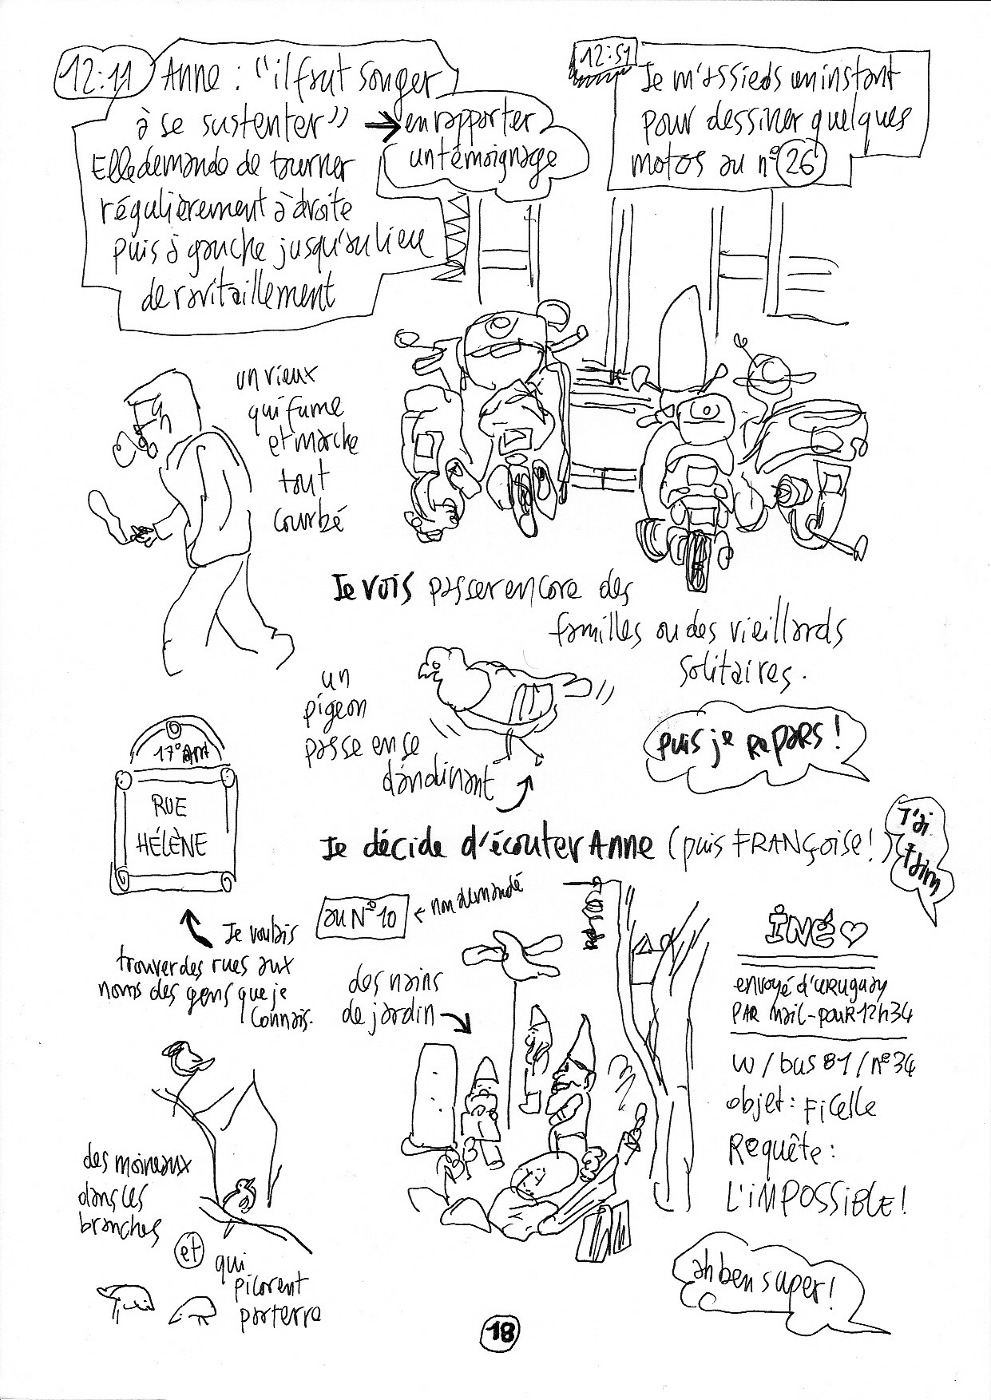 12:11 Anne : "il faut songer
à se sustenter"
en rapporter
un témoignage
Elle demande de tourner
régulièrement à droite
puis à gauche jusqu'au lieu
de ravitaillement
12:51
Je m'assieds un instant
pour dessiner quelques
motos au n° 26
un vieux
qui fume
et marche
tout
courbé
Je vois passer encore des
familles ou des vieillards
solitaires.
un
pigeon
passe en se
dandinant
puis je repars !
17° Arrt
RUE
HÉLÈNE
Je décide d'écouter Anne (puis FRANÇOISE!)
J'ai
faim
Je voulais
trouver des rues aux
noms des gens que je
connais.
au N° 10
non demandé
des nains
de jardin
INÉ
envoyé d'URUGUAY
PAR mail - pour 12h34
W / bus 81 / n° 34
objet : Ficelle
Requête :
L'IMPOSSIBLE !
des moineaux
dans les
branches
et
qui
picorent
par terre
ah ben super !
18